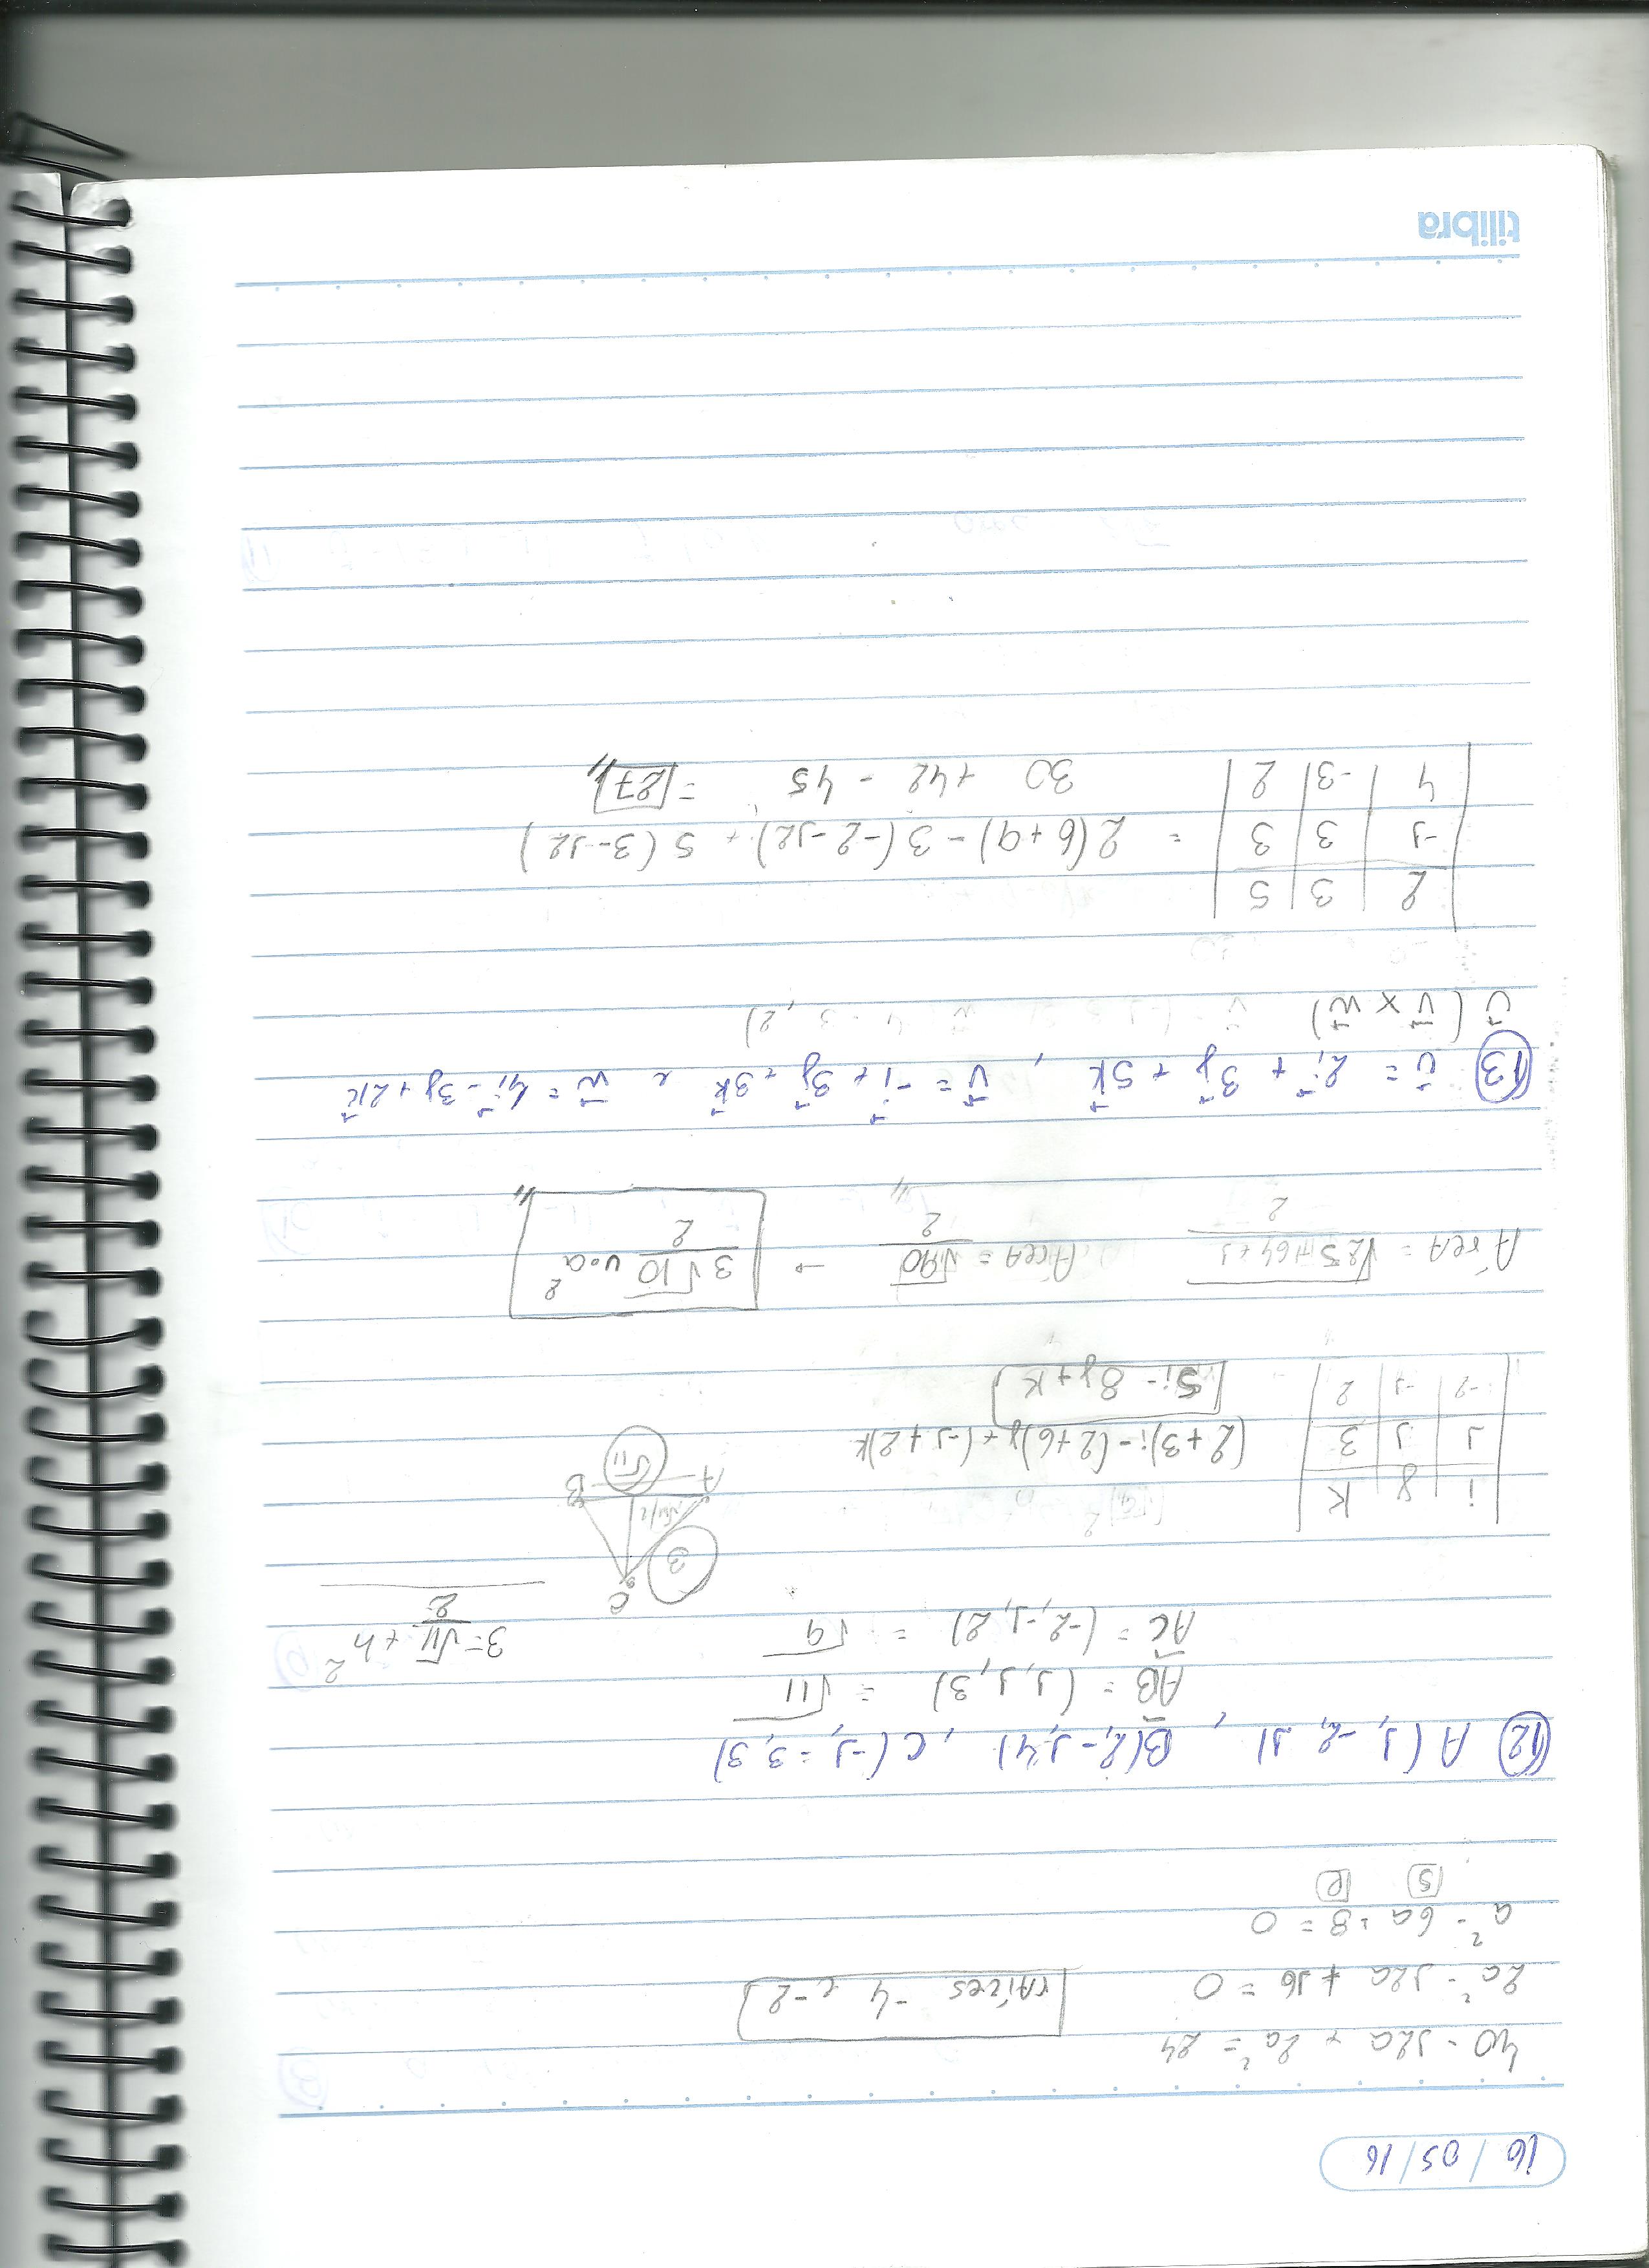 16/05/16
40 - 12a + 2a² = 24
2a² - 12a + 16 = 0
raízes -4 e -2
a² - 6a + 8 = 0
S P
12 A(1, -2, 1), B(2, -1, 4), C(-1, -3, 3)
AB = (1, 1, 3) = √11
AC = (-2, -1, 2) = √9
3 = √11/2 + h²
C
3
√11/2
A B
√11
i j k
1 1 3
-2 -1 2
(2+3)i - (2+6)j + (-1+2)k
5i - 8j + k
Área = √25+64+1 / 2 Área = √90 / 2 → 3√10 / 2 u.a²
13 u = 2i + 3j + 5k, v = -i + 3j + 3k e w = 4i - 3j + 2k
u (v x w)
2 3 5
-1 3 3 = 2(6+9) - 3(-2-12) + 5(3-12)
4 -3 2 30 +42 - 45 = 27
tilibra